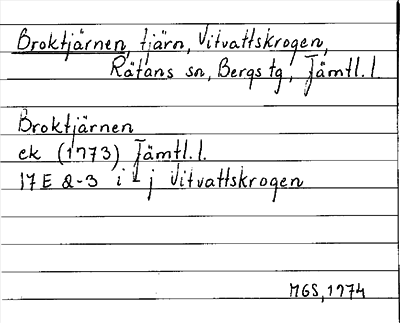 Broktjärnen, tjärn, Vitvattskrogen,
Rätans sn, Bergs tg, Jämtl.l.
Broktjärnen
ek (1973) Jämtl.l.
17E 2-3 i-j Vitvattskrogen
MGS, 1974